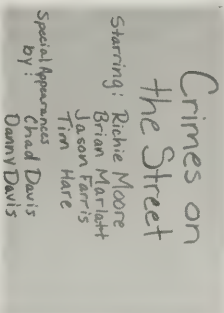 Crimes on
the Street
Starring: Richie Moore
Brian Marlatt
Jason Farris
Tim Hare
Special Appearances
by: Chad Davis
Danny Davis